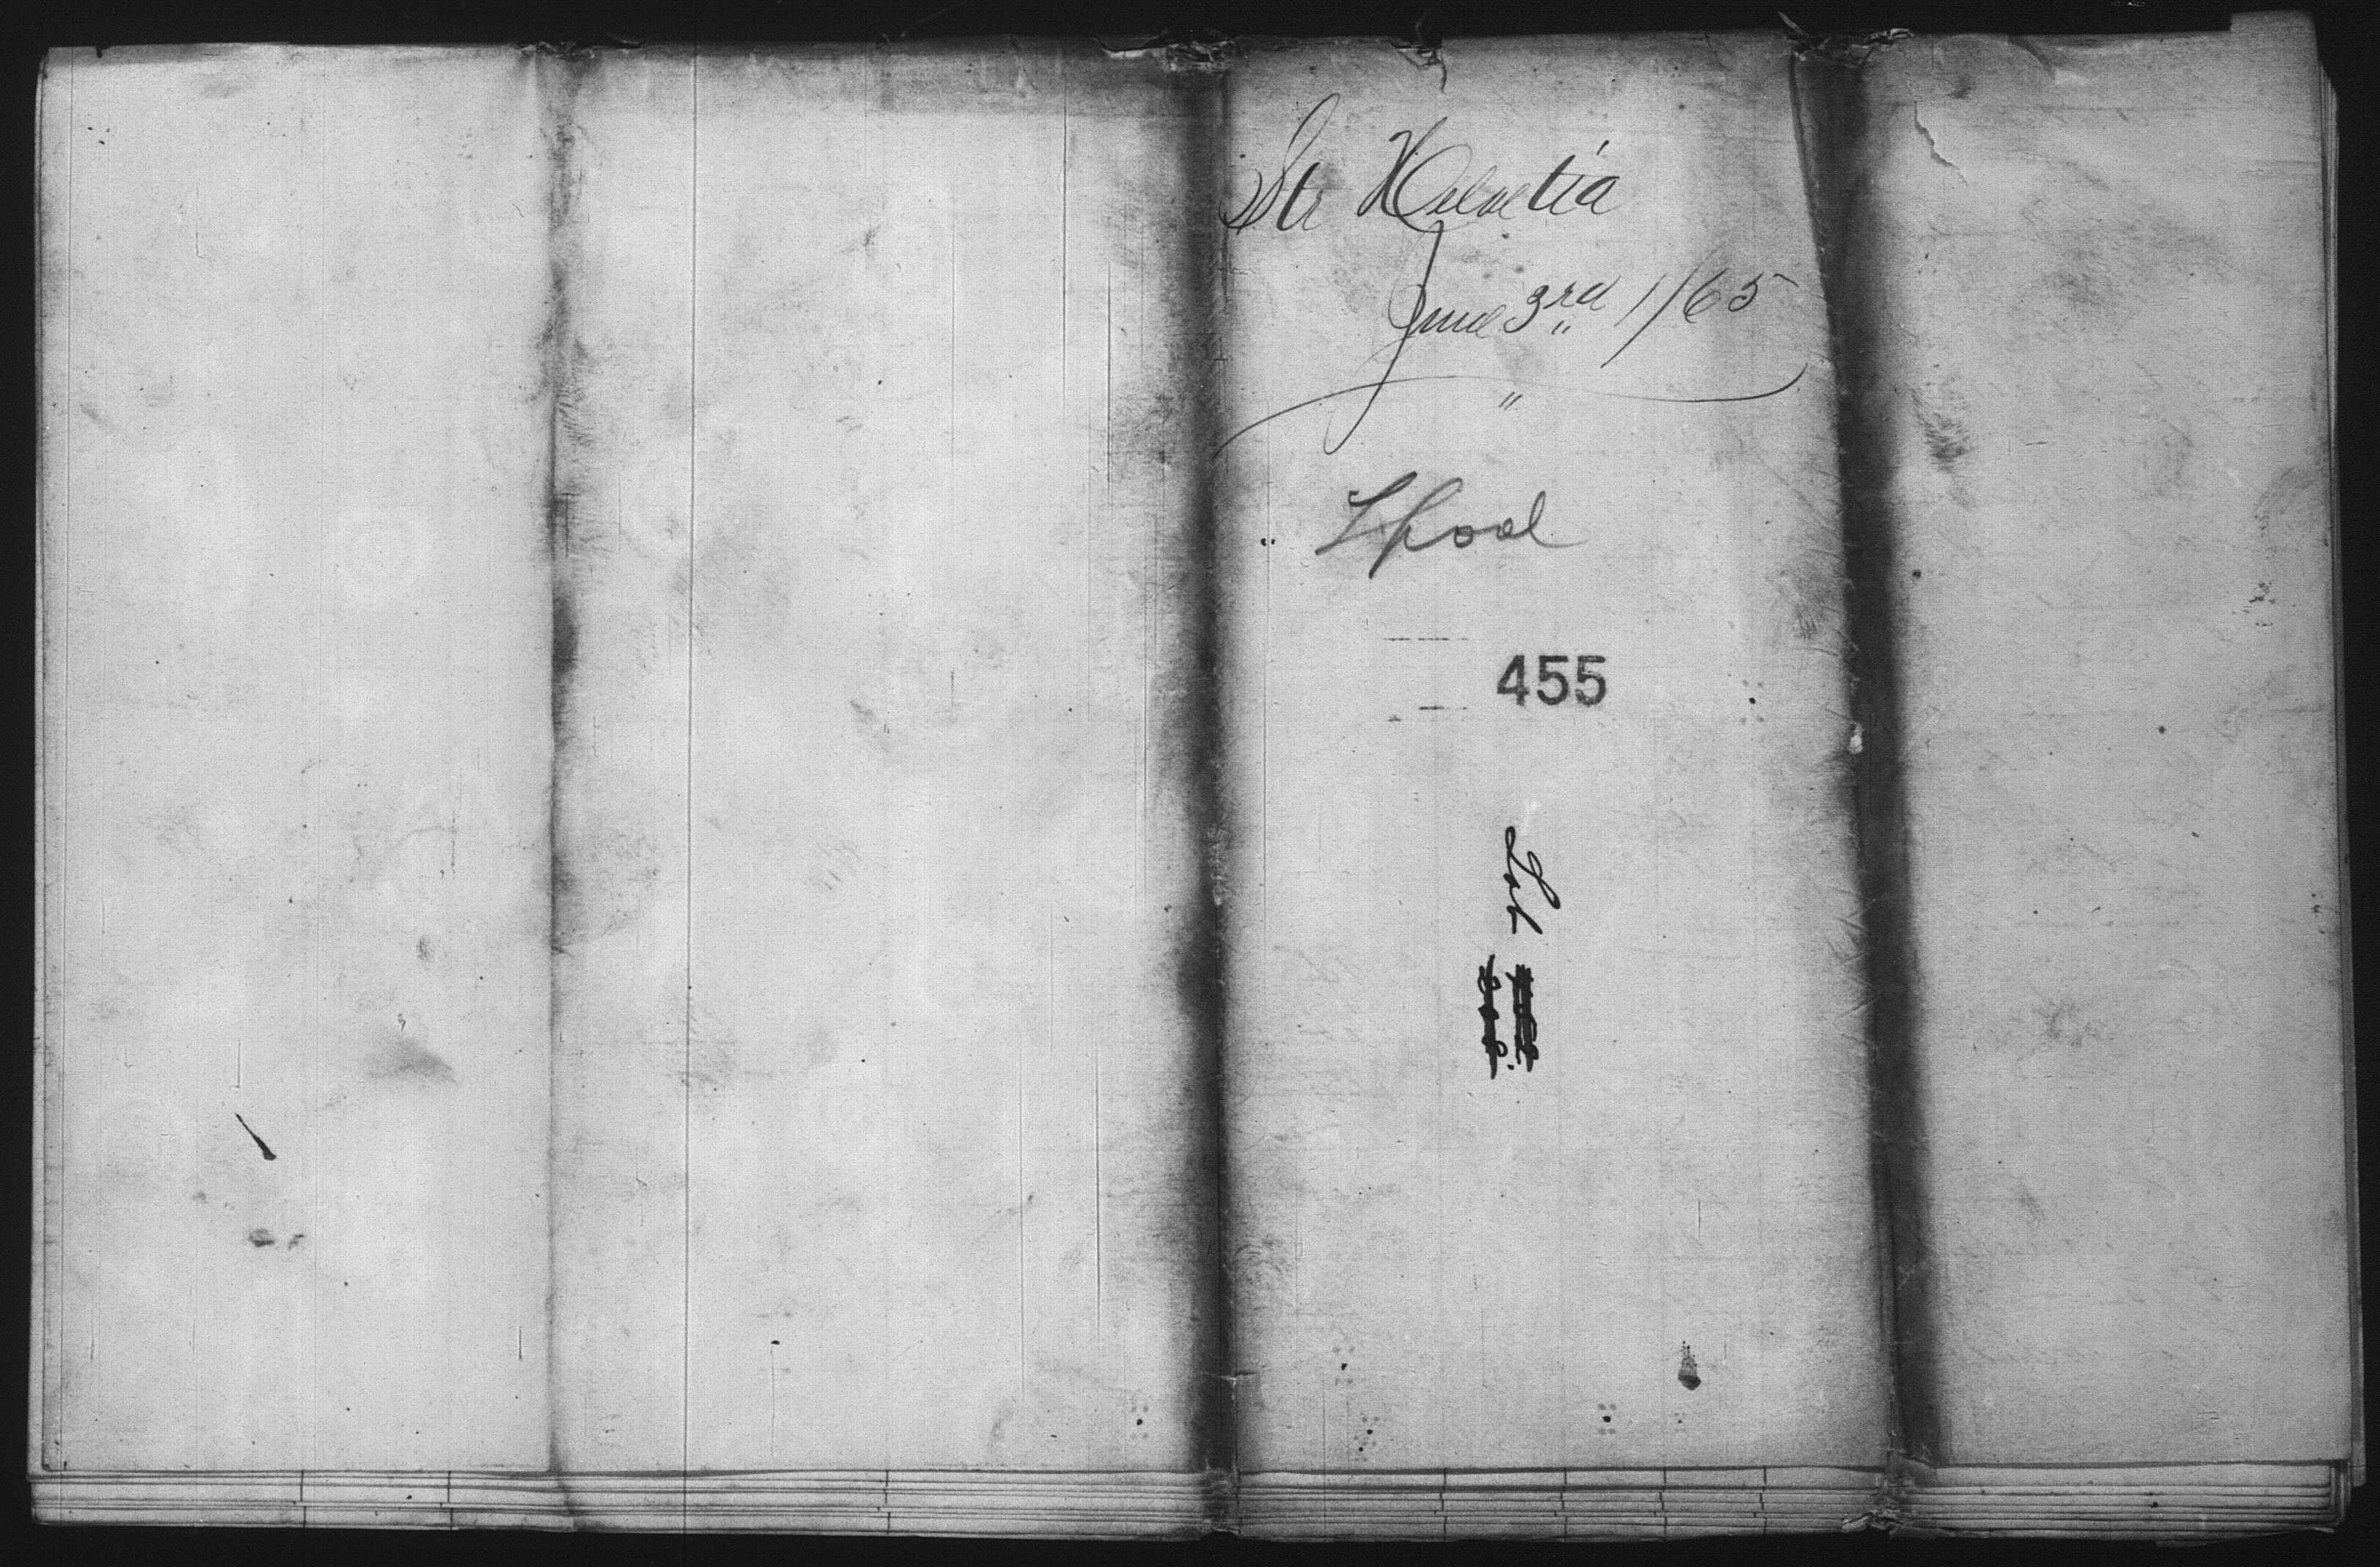 Str Helvetia
June 3rd 1/65
"
Lpool
455
List